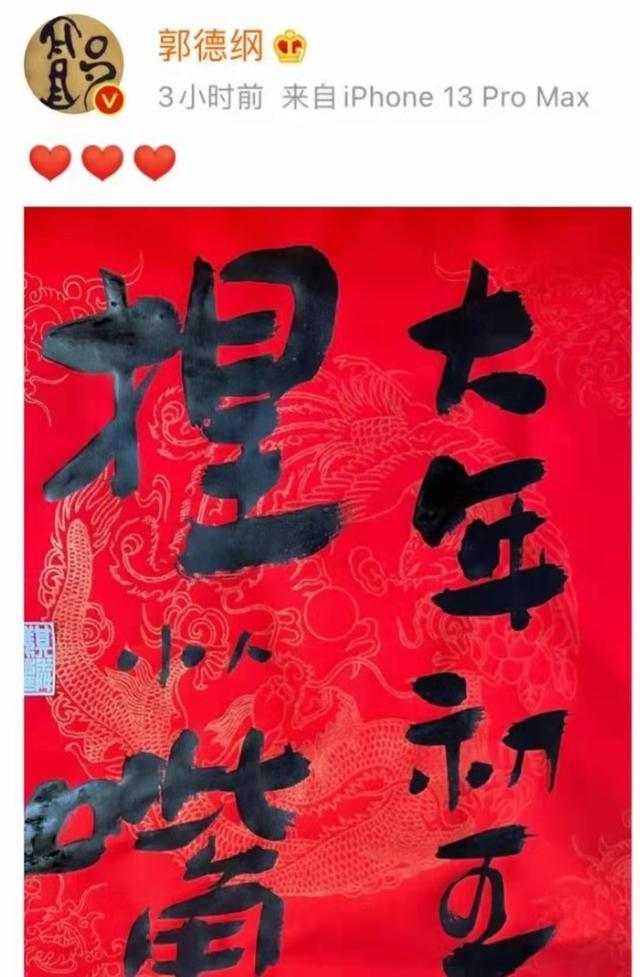 郭德纲
3小时前 来自iPhone 13 Pro Max
大年初五
捏小人嘴